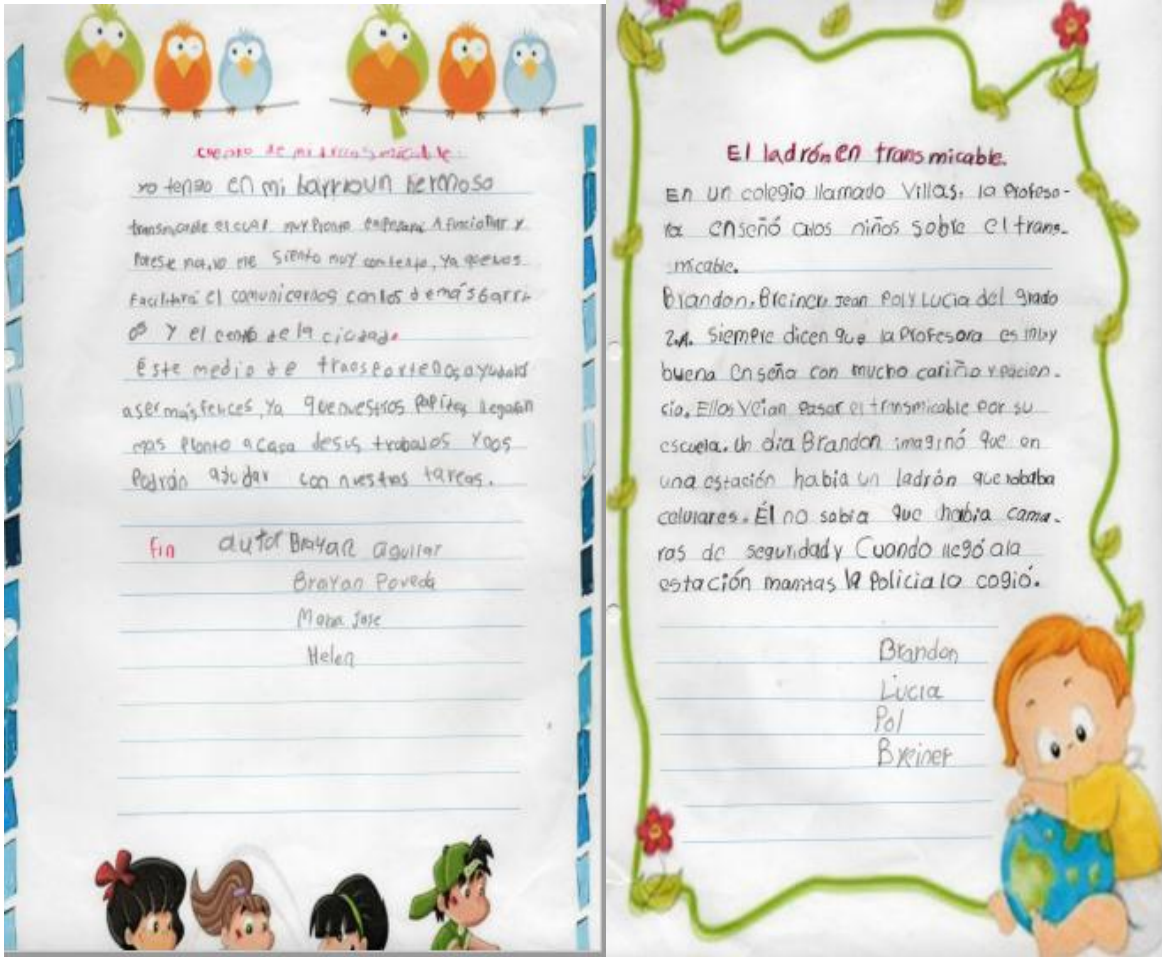 cuento de mi transmicable
yo tengo en mi barrio un hermoso
transmicable el cual muy pronto empesara A funcionar y
Por ese no, yo me siento muy contento, ya que nos
Facilitará el comunicarnos con los demás barri
os y el centro de la ciudad.
Este medio de transporte nos ayudara
a ser más felices, ya que nuestros papitos llegaran
mas pronto a casa de sus trabajos y nos
Podrán ayudar con nuestras tareas.
fin autor Brayan aguilar
Brayan Poveda
Maria Jose
Helen
El ladrón en transmicable.
En un colegio llamado Villas, la Profeso-
ra enseñó a los niños sobre el trans-
micable.
Brandon, Breiner, Jean Pol y Lucia del grado
2.A. Siempre dicen que la Profesora es muy
buena enseña con mucho cariño y pacien-
cia. Ellos Veian pasar el transmicable por su
escuela. Un dia Brandon imaginó que en
una estación habia un ladrón que robaba
celulares. Él no sabia que habia cama-
ras de seguridad y Cuando llegó a la
estación manitas la Policia lo cogió.
Brandon
Lucia
Pol
Breiner